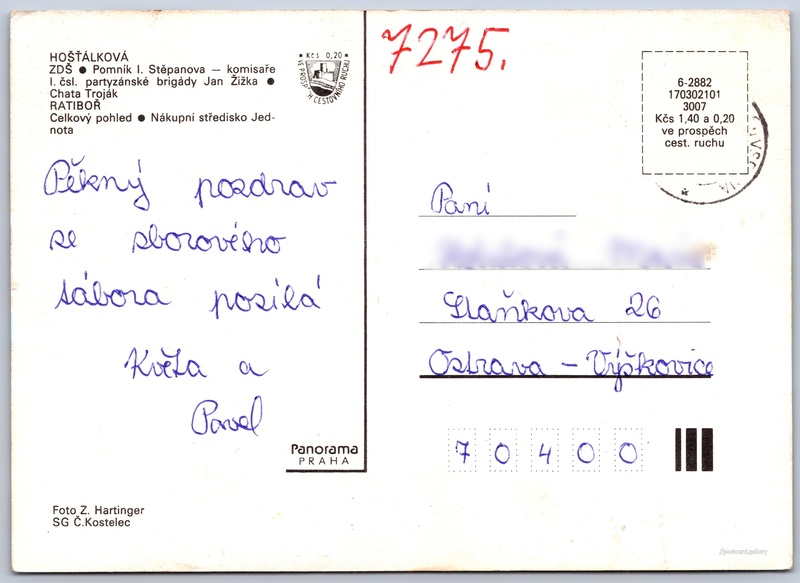 HOŠŤÁLKOVÁ
ZDŠ ● Pomník I. Stěpanova — komisaře
I. čsl. partyzánské brigády Jan Žižka ●
Chata Troják
RATIBOŘ
Celkový pohled ● Nákupní středisko Jed-
nota
● Kčs 0,20 ●
VE PROSPĚCH CESTOVNÍHO RUCHU
7275.
6-2882
170302101
3007
Kčs 1,40 a 0,20
ve prospěch
cest. ruchu
Pěkný pozdrav
se sborového
tábora posílá
Květa a
Pavel
Paní
Staňkova 26
Ostrava – Výškovice
70400
Panorama
PRAHA
Foto Z. Hartinger
SG Č.Kostelec